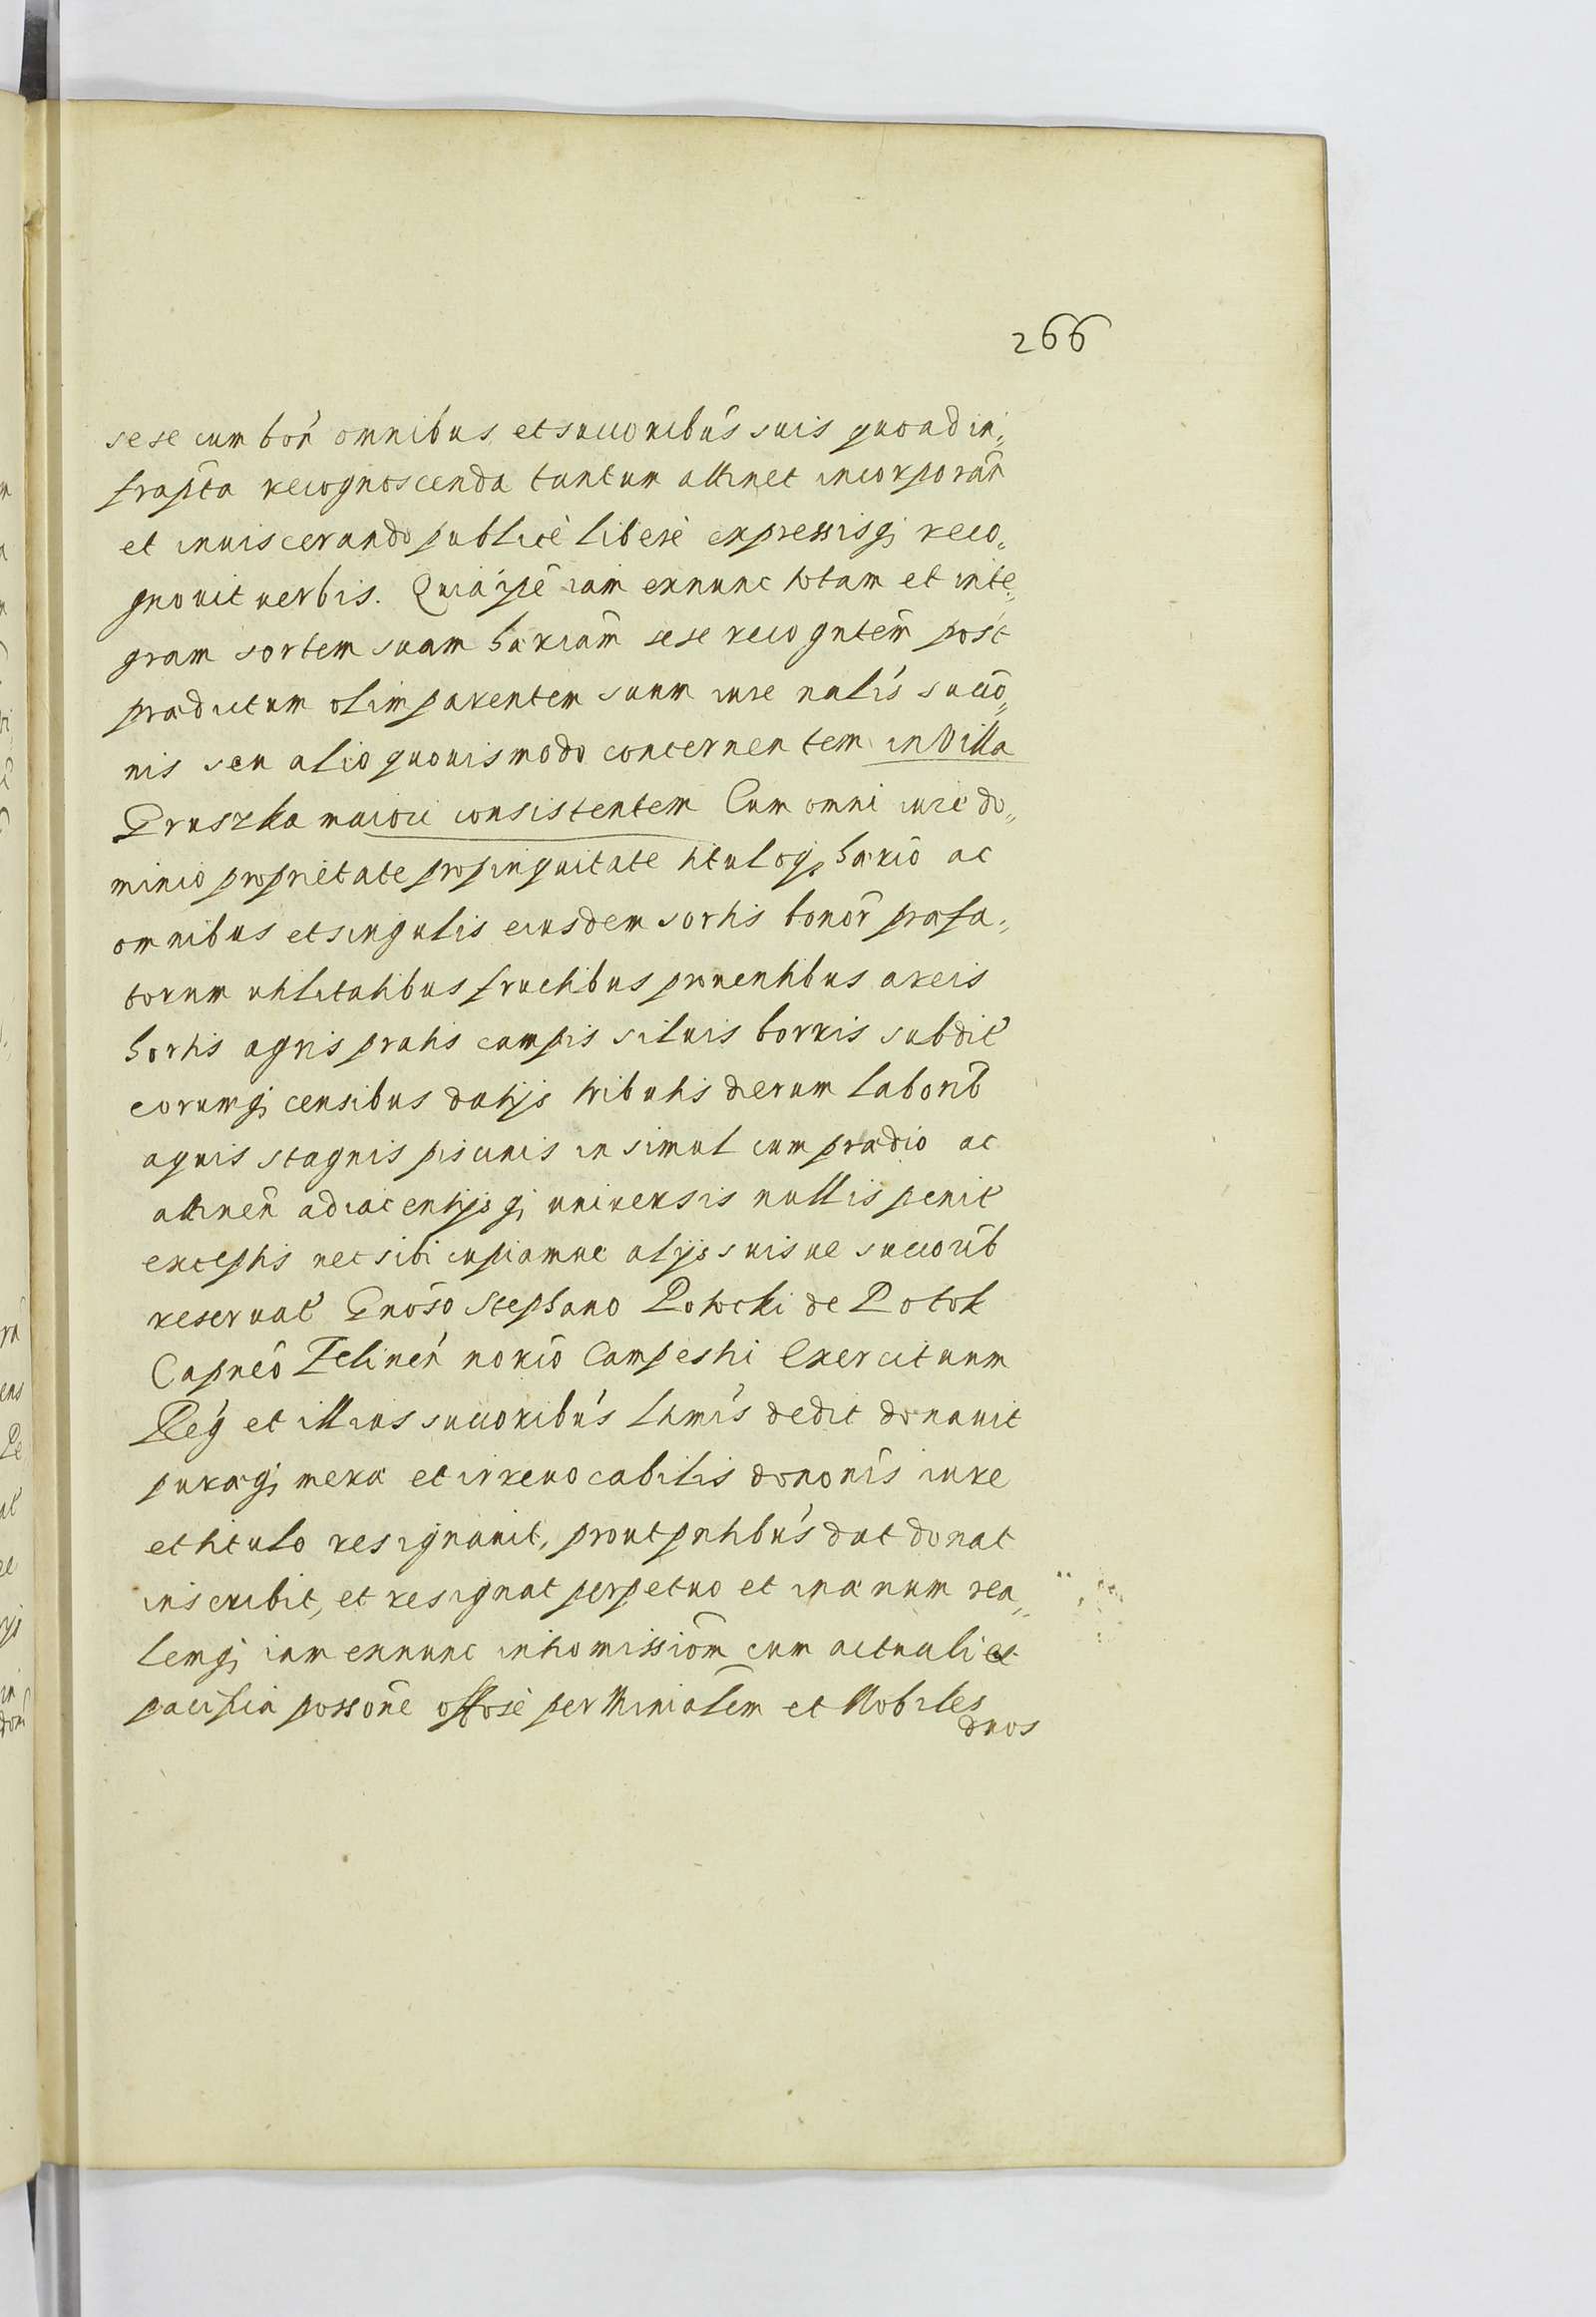 266
sese cum bon̄ omnibus et succoribūs suis quoad in„
frapta recognoscenda tantum attinet incorporan̄
et inuiscerando publicè liberè expressisq; reco„
gnouit uerbis. Quia ipē iam exnunc totam et inte„
gram sortem suam hæriam̄ sese recogntem̄ post
prædictum olim parentem suum iure nalīs succō„
nis seu alio quouismodo concernentem in Villa
Pruszka maiori consistentem Cum omni iure do„
minio proprietate propinquitate tituloq; hærio ac
omnibus et singulis eiusdem sortis bonor̄ præfa„
torum utilitatibus fructibus prouentibus areis
hortis agris pratis campis siluis borris subdit̄
eorumq; censibus datijs tributis dierum laborib̄
aquis stagnis piscinis insimul cum prædio ac
attinen̄ adiacentijsq; uniuersis nullis penit̄
exceptis nec sibi cupiamue alijs suisue succorib̄
reseruat̄ Gnoso Stephano Potocki de Potok
Capneo Felinen̄ norio Campestri Exercituum
Reḡ et illius succoribūs ltimīs dedit donauit
puræq; meræ et irreuocabilis dononīs iure
et titulo resignauit, prout pntibūs dat donat
inscribit, et resignat perpetuo et in æuum rea„
lemq; iam exnunc intromissiom̄ cum actuali et
pacifica possone offosè per Minialem et Nobiles
duos